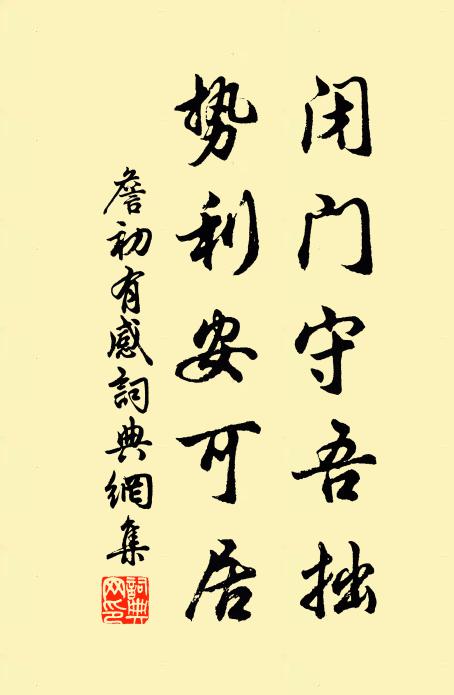 闭门守吾拙
势利安可居
詹初有感詞典網集
詞典
网印